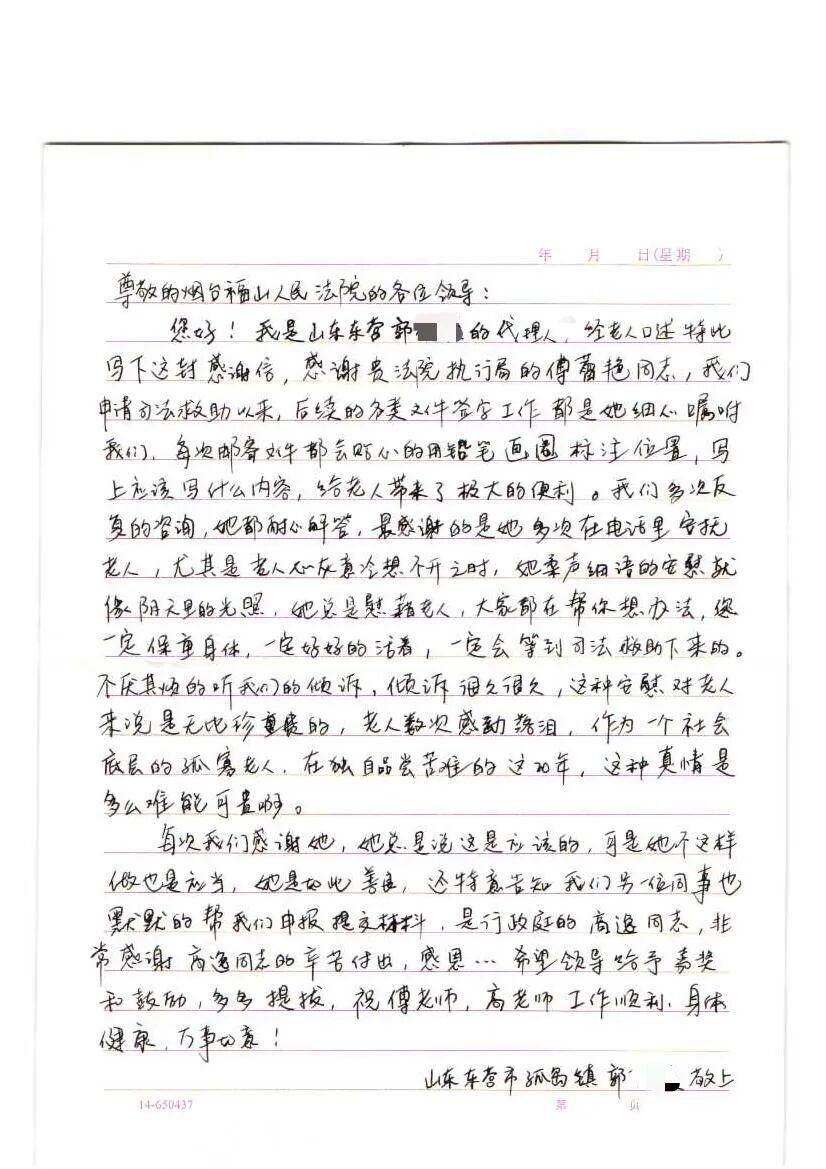 年 月 日(星期 )
尊敬的烟台福山人民法院的各位领导：
您好！我是山东东营郭 的代理人，经老人口述特此
写下这封感谢信，感谢贵法院执行局的傅蕾艳同志，我们
申请司法救助以来，后续的各类文件签字工作都是她细心嘱咐
我们，每次邮寄文件都会贴心的用铅笔画圈标注位置，写
上应该写什么内容，给老人带来了极大的便利。我们多次反
复的咨询，她都耐心解答，最感谢的是她多次在电话里安抚
老人，尤其是老人心灰意冷想不开之时，她柔声细语的安慰就
像阴天里的光照，她总是慰藉老人，大家都在帮你想办法，您
一定保重身体，一定好好的活着，一定会等到司法救助下来的。
不厌其烦的听我们的倾诉，倾诉很久很久，这种安慰对老人
来说是无比珍贵的，老人数次感动落泪，作为一个社会
底层的孤寡老人，在独自品尝苦难的这20年，这种真情是
多么难能可贵啊。
每次我们感谢她，她总是说这是应该的，可是她不这样
做也是应当，她是如此善良，还特意告知我们另一位同事也
默默的帮我们申报提交材料，是行政庭的高 同志，非
常感谢高 同志的辛苦付出，感恩…希望领导给予嘉奖
和鼓励，多多提拔，祝傅老师，高老师工作顺利，身体
健康，万事如意！
山东东营市孤岛镇郭 敬上
14-650437 第 页